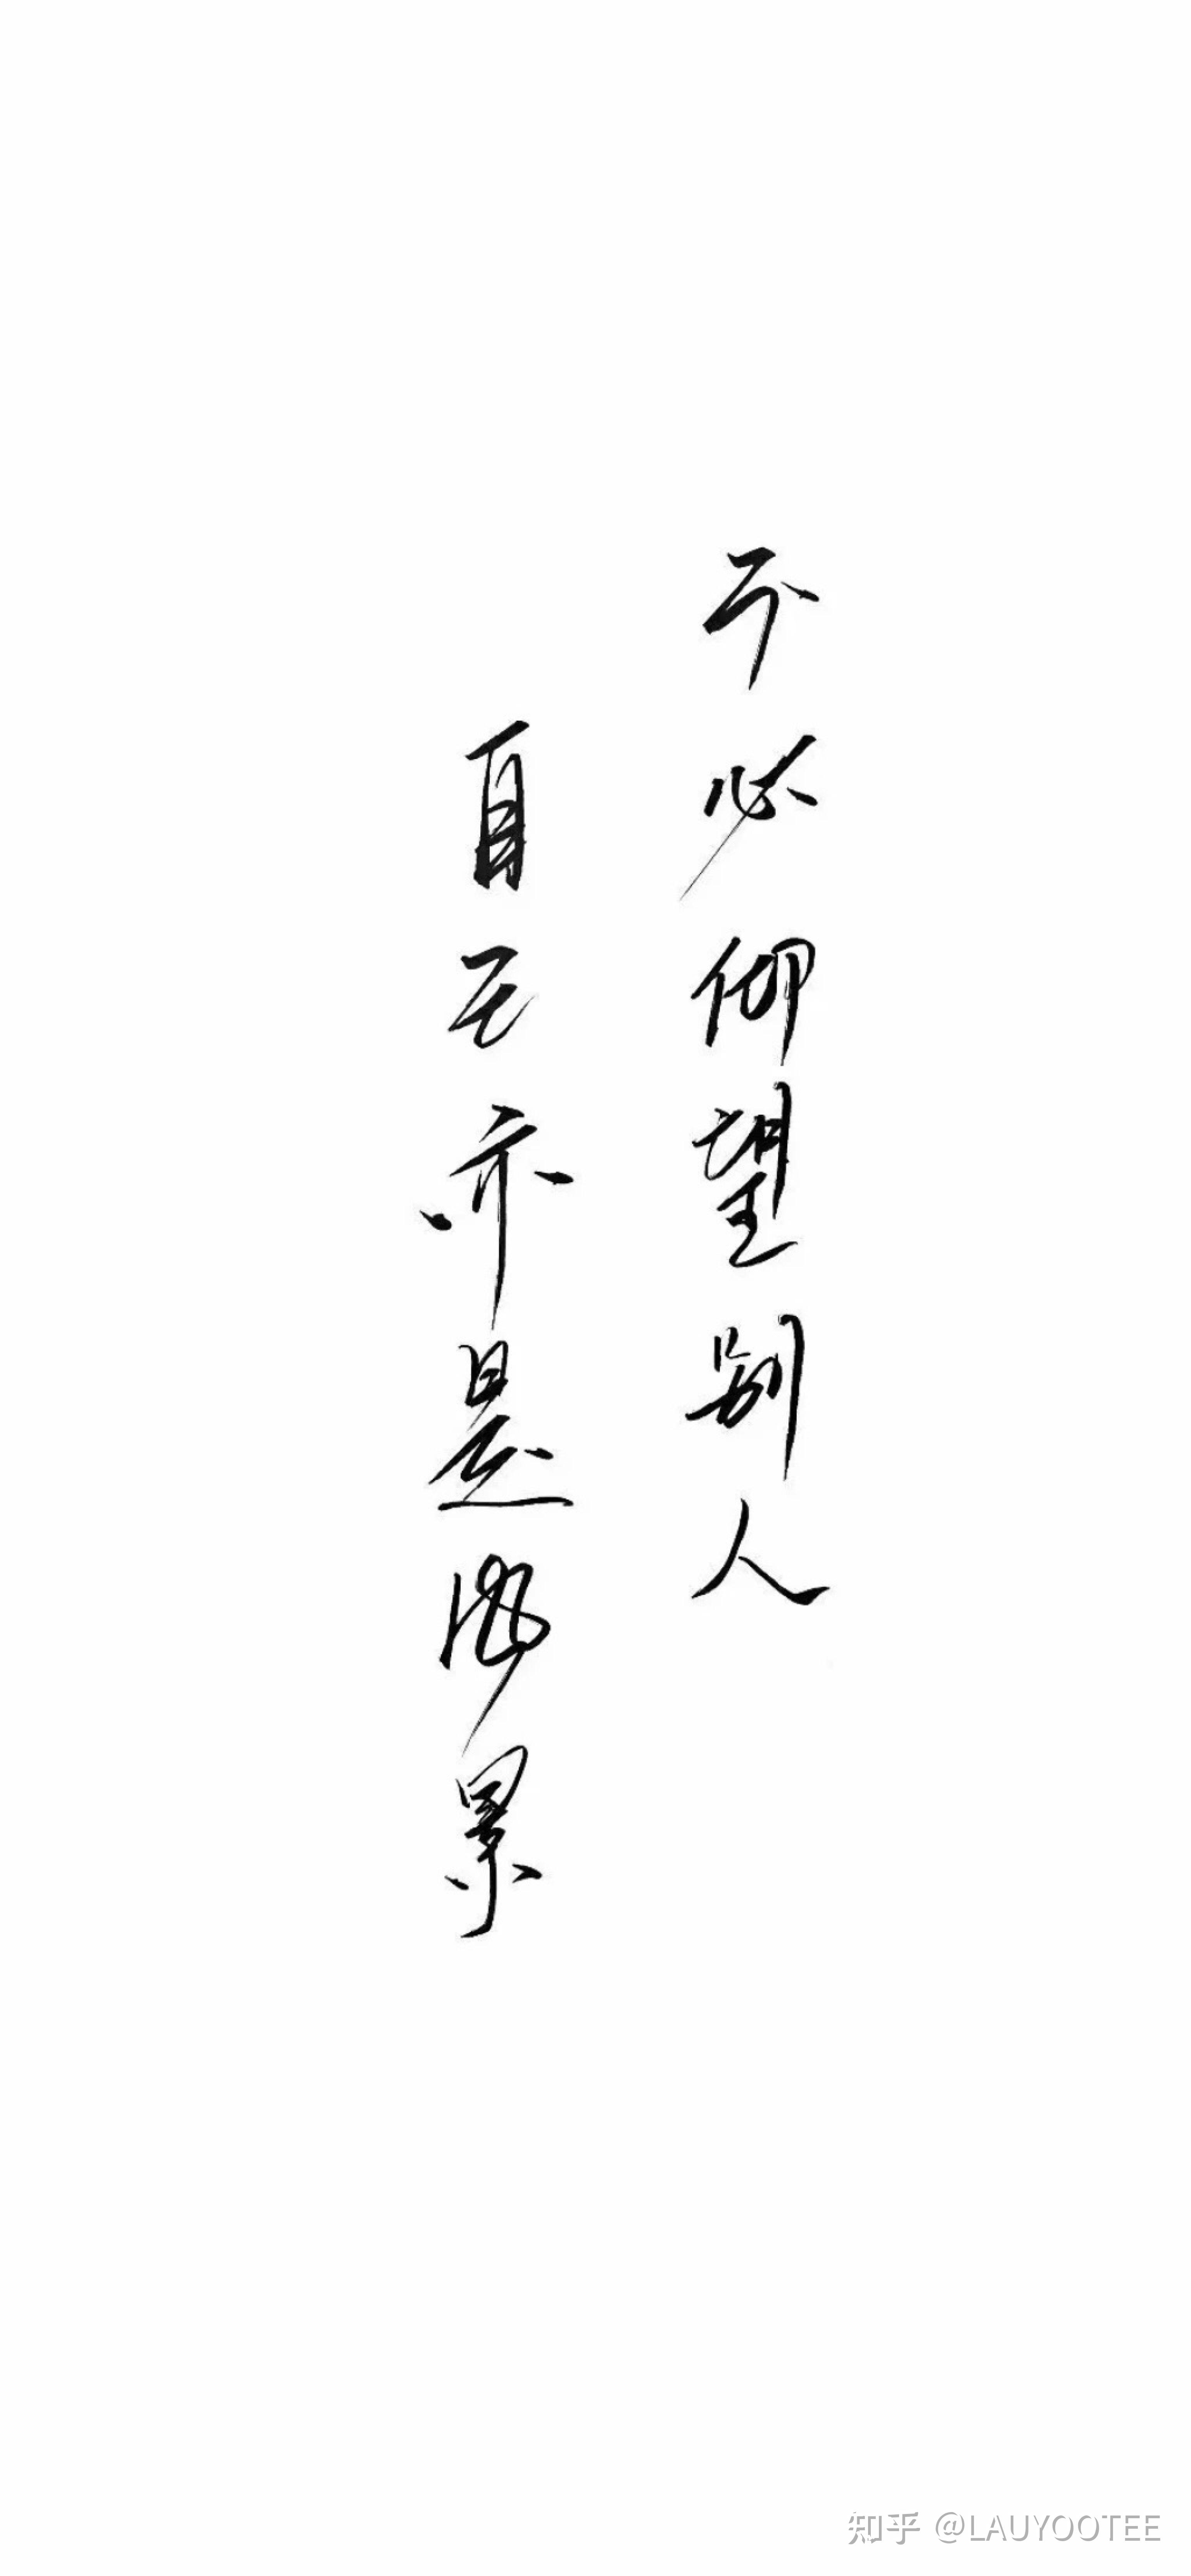 不必仰望别人
自己亦是风景
知乎 @LAUYOOTEE